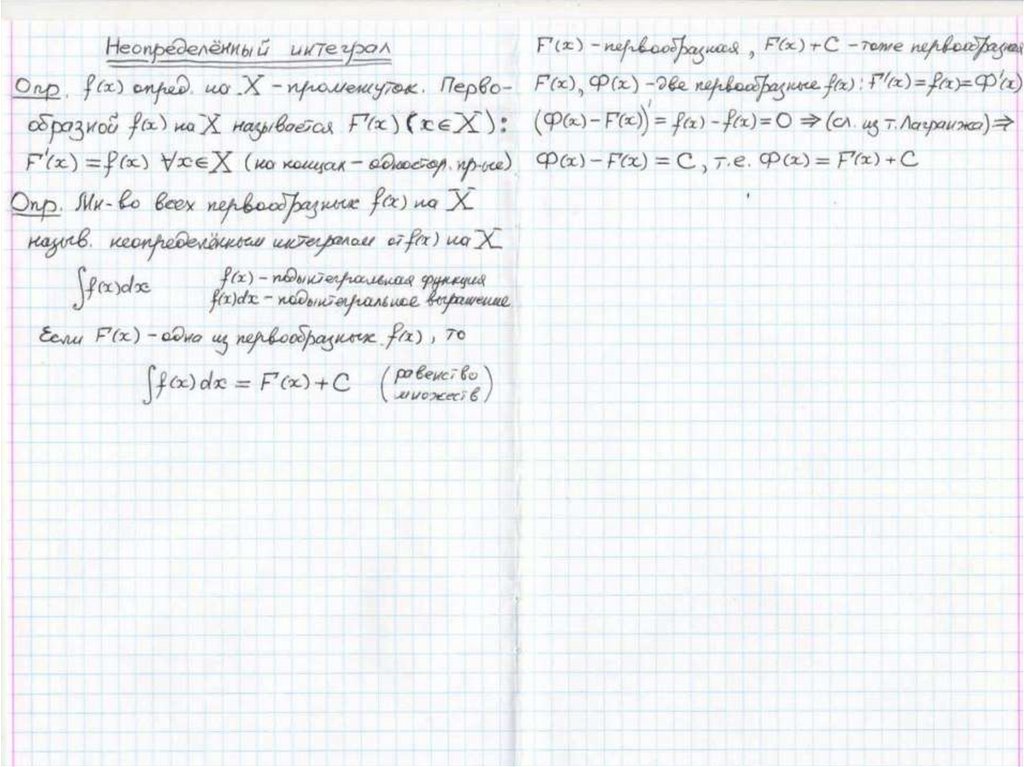 Неопределённый интеграл
Опр. f(x) опред. на X - промежуток. Перво-
образной f(x) на X называется F(x) (x∈X):
F'(x) = f(x) ∀x∈X (на концах - одностор. пр-ые)
Опр. Мн-во всех первообразных f(x) на X
назыв. неопределённым интегралом от f(x) на X
∫f(x)dx f(x) - подынтегральная функция
f(x)dx - подынтегральное выражение
Если F(x) - одна из первообразных f(x), то
∫f(x)dx = F(x) + C (равенство
множеств)
F(x) - первообразная, F(x) + C - тоже первообразная
F(x), Φ(x) - две первообразные f(x): F'(x) = f(x) = Φ'(x)
(Φ(x) - F(x))' = f(x) - f(x) = 0 ⇒ (сл. из т. Лагранжа) ⇒
Φ(x) - F(x) = C, т.е. Φ(x) = F(x) + C